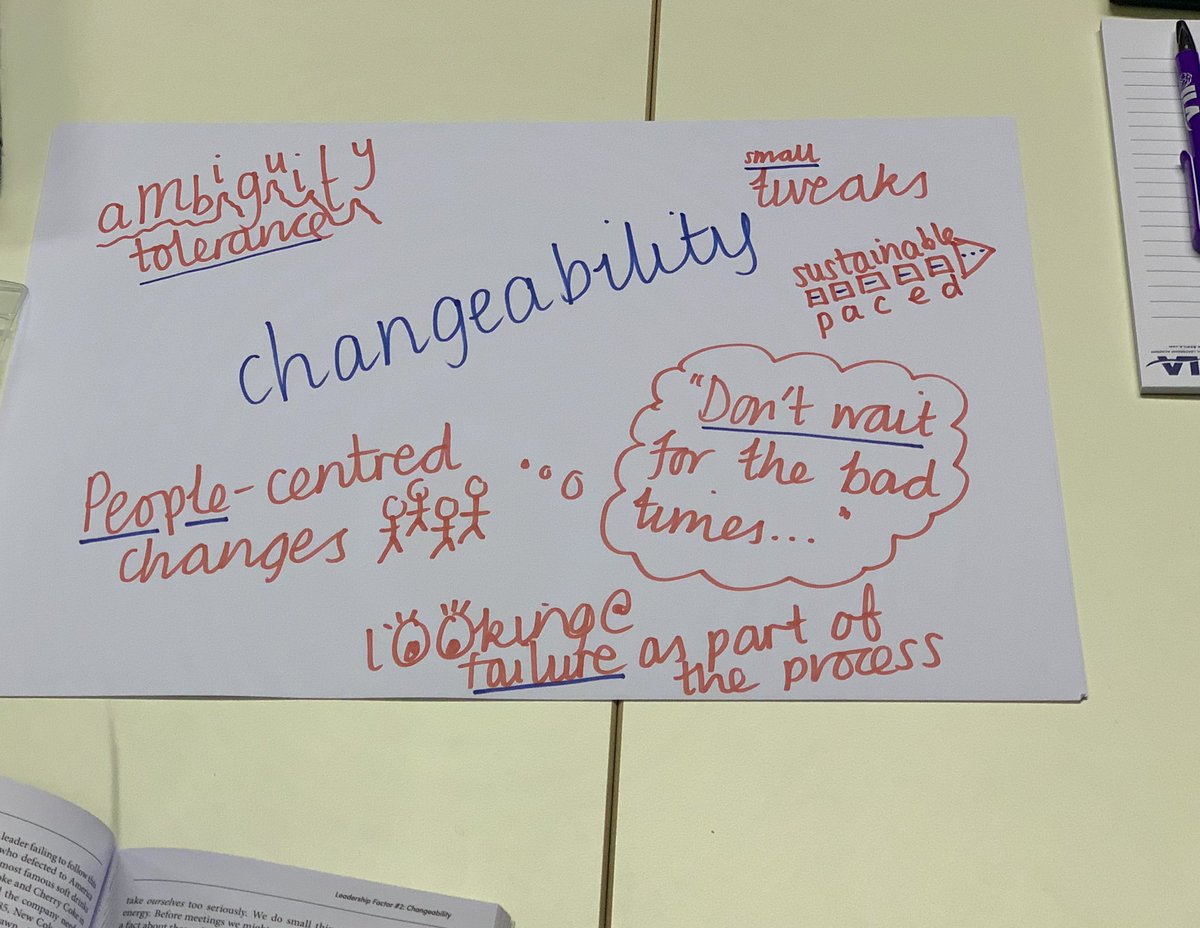 ambiguity
tolerance
small
tweaks
changeability
sustainable
paced
People-centred
changes
"Don't wait
for the bad
times..."
looking@
failure as part of
the process
LA
leader failing to follow this
who defected to America
most famous soft drinks
oke and Cherry Coke in
the company
85, New
Leadership Factor #2: Changeability
take ourselves too seriously. We do small
energy. Before meetings we
a fact about